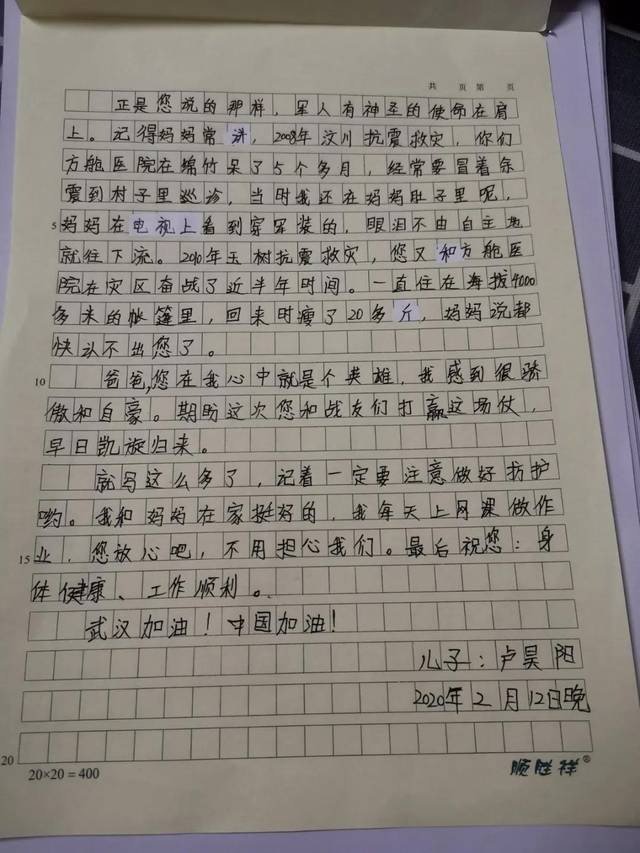 共 页 第 页
正是您说的那样，军人有神圣的使命在肩
上。记得妈妈常讲，2008年汶川抗震救灾，你们
方舱医院在绵竹呆了5个多月，经常要冒着余
震到村子里巡诊，当时我还在妈妈肚子里呢，
5 妈妈在电视上看到穿军装的，眼泪不由自主地
就往下流。2010年玉树抗震救灾，您又和方舱医
院在灾区奋战了近半年时间。一直住在海拔4000
多米的帐篷里，回来时瘦了20多斤，妈妈说都
快认不出您了。
10 爸爸，您在我心中就是个英雄，我感到很骄
傲和自豪。期盼这次您和战友们打赢这场仗，
早日凯旋归来。
就写这么多了，记着一定要注意做好防护
哟。我和妈妈在家挺好的，我每天上网课做作
15 业，您放心吧，不用担心我们。最后祝您：身
体健康、工作顺利。
武汉加油！中国加油！
儿子：卢昊阳
2020年2月12日晚
20
20×20=400 顺胜祥®